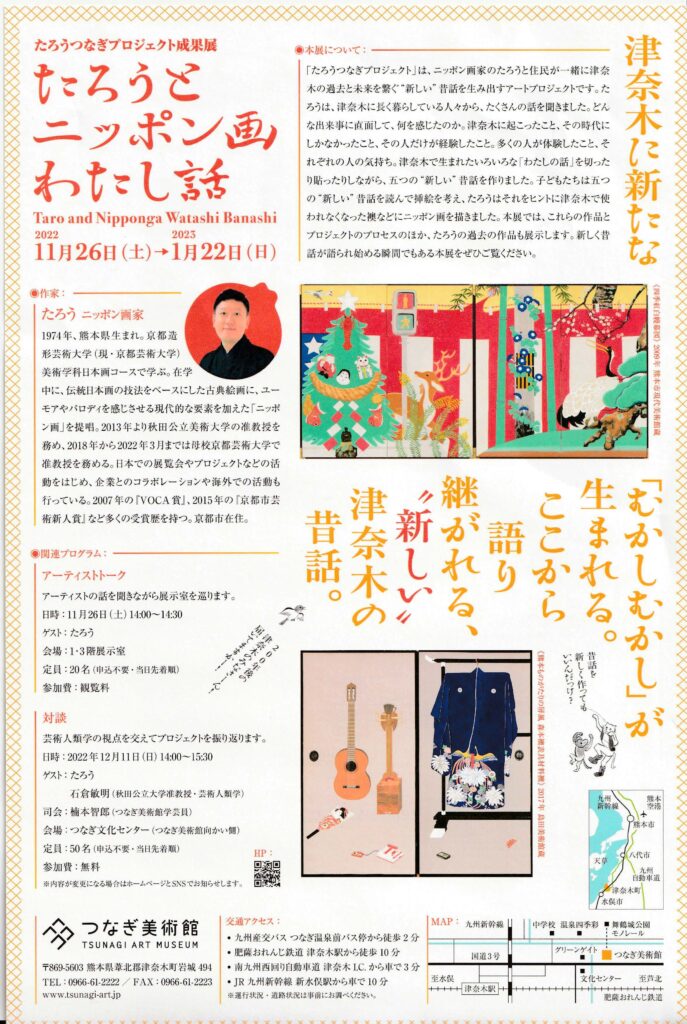 たろうつなぎプロジェクト成果展
たろうと
ニッポン画
わたし話
Taro and Nipponga Watashi Banashi
2022 2023
11月26日(土)→1月22日(日)
●本展について：
「たろうつなぎプロジェクト」は、ニッポン画家のたろうと住民が一緒に津奈
木の過去と未来を繋ぐ“新しい”昔話を生み出すアートプロジェクトです。た
ろうは、津奈木に長く暮らしている人々から、たくさんの話を聞きました。どん
な出来事に直面して、何を感じたのか。津奈木に起こったこと、その時代に
しかなかったこと、その人だけが経験したこと。多くの人が体験したこと、そ
れぞれの人の気持ち。津奈木で生まれたいろいろな「わたしの話」を切った
り貼ったりしながら、五つの“新しい”昔話を作りました。子どもたちは五つ
の“新しい”昔話を読んで挿絵を考え、たろうはそれをヒントに津奈木で使
われなくなった襖などにニッポン画を描きました。本展では、これらの作品と
プロジェクトのプロセスのほか、たろうの過去の作品も展示します。新しく昔
話が語られ始める瞬間でもある本展をぜひご覧ください。
津奈木に新たな
「むかしむかし」が
生まれる。
ここから
語り
継がれる、
“新しい”
津奈木の
昔話。
●作家：
たろう ニッポン画家
1974年、熊本県生まれ。京都造
形芸術大学（現・京都芸術大学）
美術学科日本画コースで学ぶ。在学
中に、伝統日本画の技法をベースにした古典絵画に、ユー
モアやパロディを感じさせる現代的な要素を加えた「ニッポ
ン画」を提唱。2013年より秋田公立美術大学の准教授を
務め、2018年から2022年3月までは母校京都芸術大学で
准教授を務める。日本での展覧会やプロジェクトなどの活
動をはじめ、企業とのコラボレーションや海外での活動も
行っている。2007年の『VOCA賞』、2015年の『京都市芸
術新人賞』など多くの受賞歴を持つ。京都市在住。
《四季紅白幔幕図》2009年 熊本市現代美術館蔵
●関連プログラム：
アーティストトーク
アーティストの話を聞きながら展示室を巡ります。
日時：11月26日(土)14:00〜14:30
ゲスト：たろう
会場：1・3階展示室
定員：20名（申込不要・当日先着順）
参加費：観覧料
対談
芸術人類学の視点を交えてプロジェクトを振り返ります。
日時：2022年12月11日(日)14:00〜15:30
ゲスト：たろう
石倉敏明（秋田公立大学准教授・芸術人類学）
司会：楠本智郎（つなぎ美術館学芸員）
会場：つなぎ文化センター（つなぎ美術館向かい側）
定員：50名（申込不要・当日先着順）
参加費：無料
※内容が変更になる場合はホームページとSNSでお知らせします。
HP：
200年後の
津奈木のみなさーん
届いてますかー！
昔話を
新しく作っても
いいんだっけ？
《熊本ものがたりの屏風 森本襖表具材料襖》2017年 島田美術館蔵
九州
新幹線
熊本
空港
熊本市
八代市
天草
九州
自動車道
津奈木町
水俣市
つなぎ美術館
TSUNAGI ART MUSEUM
〒869-5603 熊本県葦北郡津奈木町岩城494
TEL：0966-61-2222 ／ FAX：0966-61-2223
www.tsunagi-art.jp
交通アクセス：
• 九州産交バス つなぎ温泉前バス停から徒歩2分
• 肥薩おれんじ鉄道 津奈木駅から徒歩10分
• 南九州西回り自動車道 津奈木I.C.から車で3分
• JR九州新幹線 新水俣駅から車で10分
※運行状況・道路状況は事前にお調べください。
MAP：
九州新幹線
中学校
温泉四季彩
舞鶴城公園
モノレール
国道3号
グリーンゲイト
つなぎ美術館
至水俣
津奈木駅
文化センター
至芦北
肥薩おれんじ鉄道